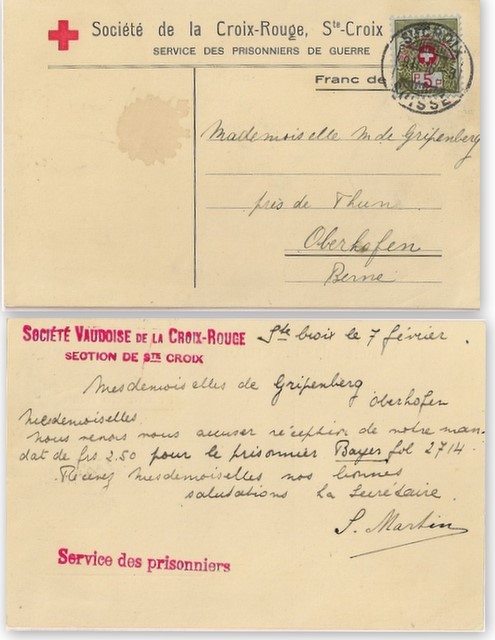 Société de la Croix-Rouge, Ste-Croix
SERVICE DES PRISONNIERS DE GUERRE
Franc de
5
Mademoiselle M de Gripenberg
près de Thune
Oberhofen
Berne
SOCIÉTÉ VAUDOISE DE LA CROIX-ROUGE
SECTION DE STE CROIX
Ste Croix le 7 février.
Mesdemoiselles de Gripenberg
Oberhofen
Mesdemoiselles
Nous venons vous accuser réception de votre man-
dat de frs 2.50 pour le prisonnier Bayer fol 2714.
Recevez Mesdemoiselles nos bonnes
salutations La Secrétaire.
S. Martin
Service des prisonniers